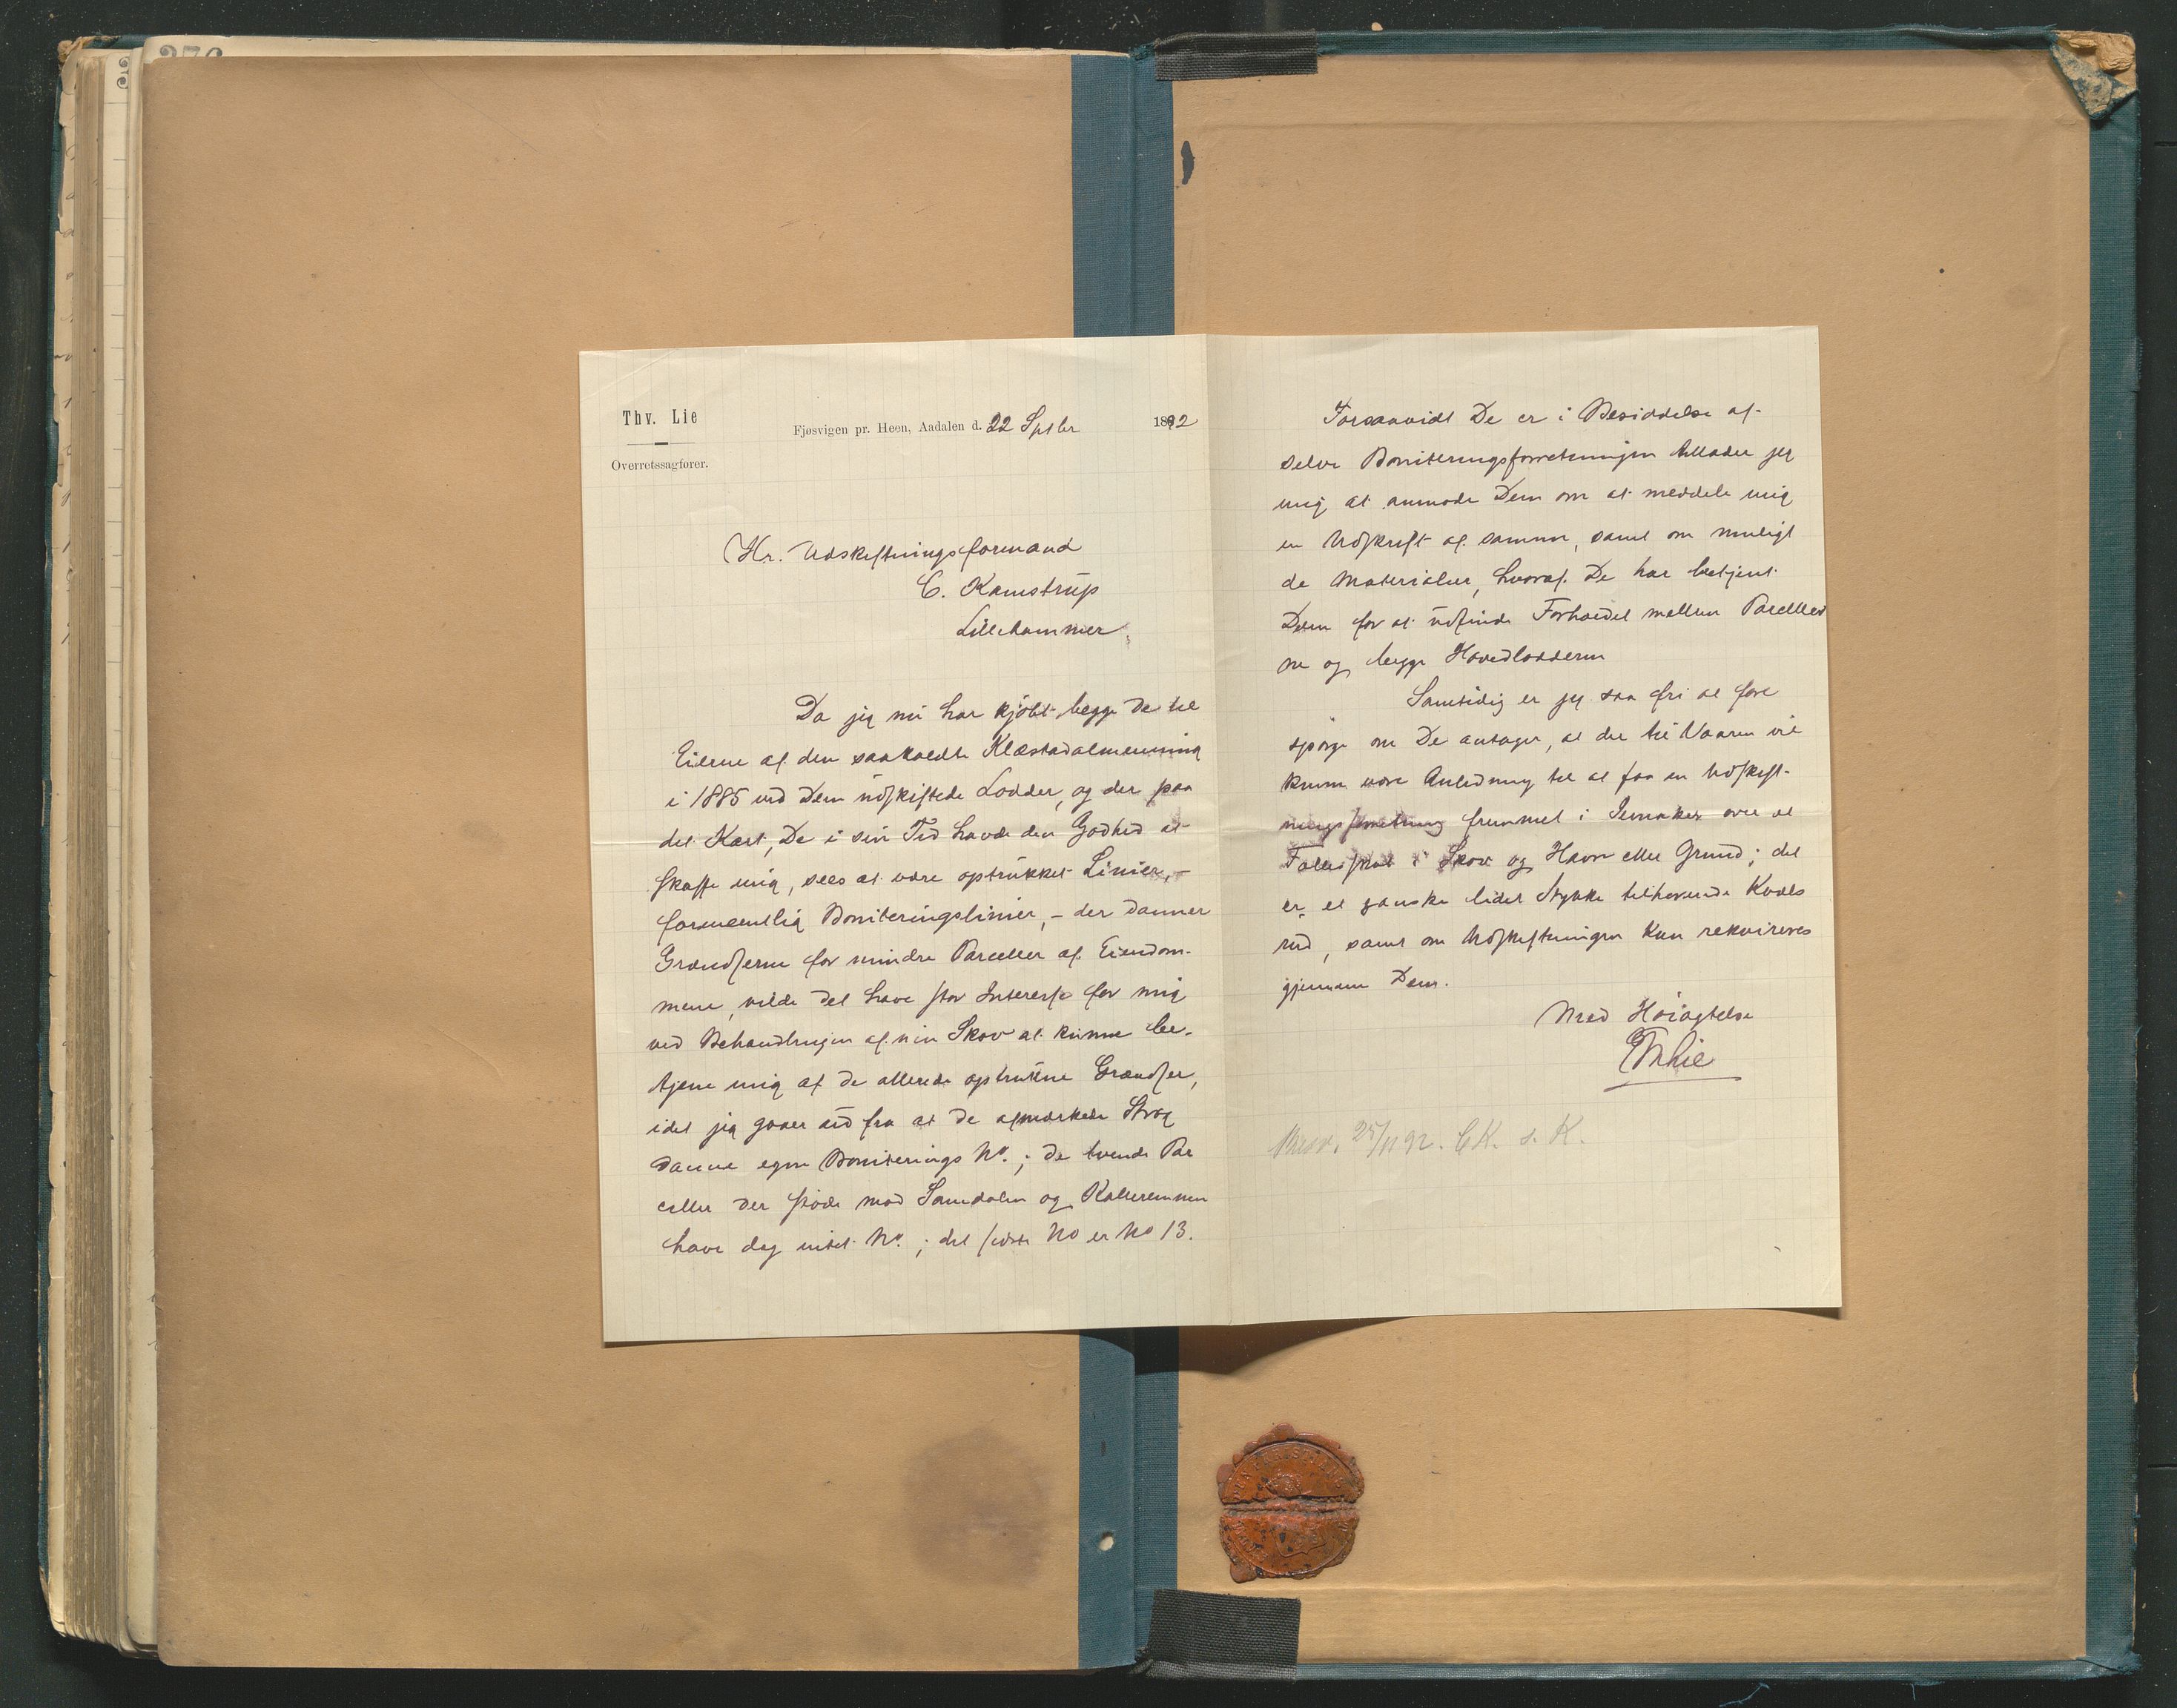 276
Thv. Lie
Overretssagfører.
Fjøsvigen pr. Heen, Aadalen d. 22 Sptbr 1892
Hr. Udskiftningsformand
C. Kamstrup
Lillehammer.
Da jeg nu har kjøbt begge de til
Eierne af den saakaldte Klæstadalmenning
i 1885 ved Dem udskiftede Lodder, og der paa
det Kart, De i sin Tid havde den Godhed at
skaffe mig, sees at være optrukket Linier, -
formentlig Boniteringslinier, - der danner
Grændserne for mindre Parceller af Eiendom-
mene, vilde det have stor Interesse for mig
ved Behandlingen af min Skov at kunne be-
tjene mig af de allerede optrukne Grændser,
idet jeg gaar ud fra at de afmærkede Strøg
danne egne Boniterings No.; de tvende Par
celler der støde mod Samdalen og
have dog intet No.; det sidste No er No 13.
Forsaavidt De er i Besiddelse af
selve Boniteringsforretningen tillader jeg
mig at anmode Dem om at meddele mig
en Udskrift af samme, samt om muligt
de Materialier, hvoraf De har betjent
Dem for at udfinde Forholdet mellem Parceller
ne og begge Hovedlodderne
Samtidig er jeg saa fri at fore
spørge om De antager, at der til Vaaren vil
kunne være Anledning til at faa en Udskift-
ningsforretning fremmet i Jevnaker over et
Fælledskab i Skov og Havn eller Grund; det
er et ganske lidet Stykke tilhørende
rud, samt om Udskiftningen kan rekvireres
gjennem Dem.
Med Høiagtelse
Th Lie
Besv. 25/11 92. CK. s. K.